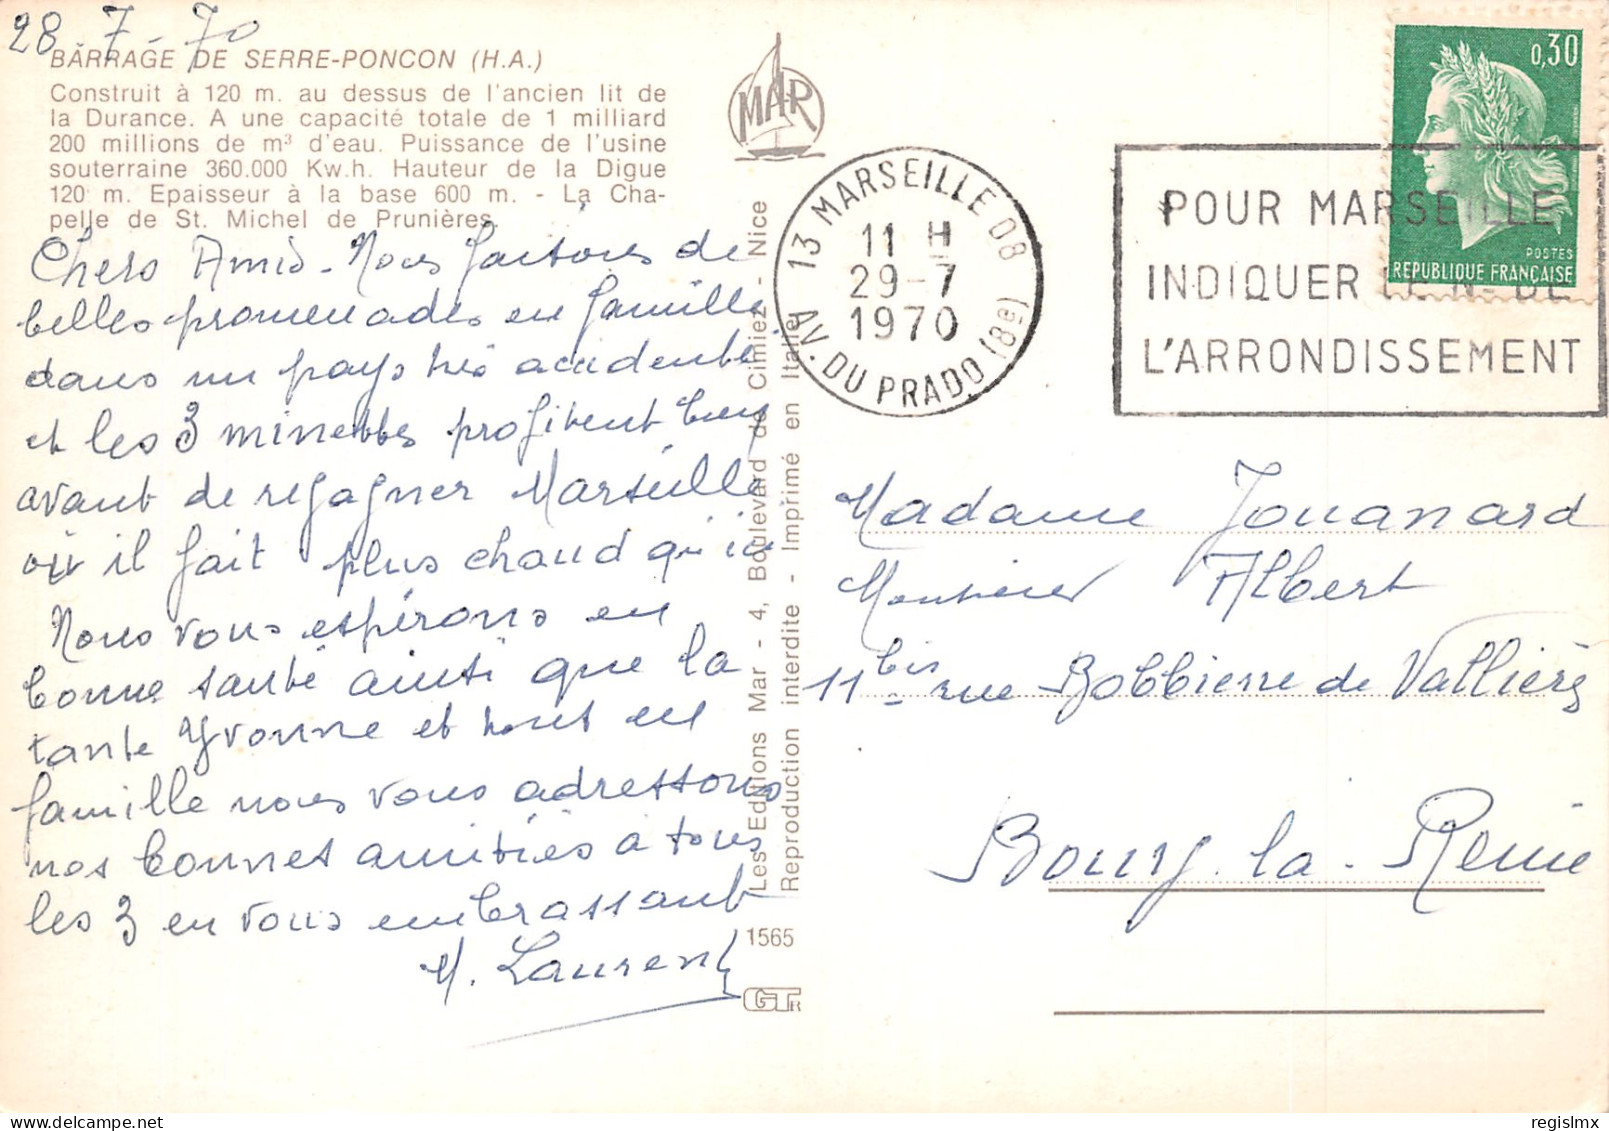 28-7-70
BARRAGE DE SERRE-PONCON (H.A.)
Construit à 120 m. au dessus de l'ancien lit de
la Durance. A une capacité totale de 1 milliard
200 millions de m³ d'eau. Puissance de l'usine
souterraine 360.000 Kw.h. Hauteur de la Digue
120 m. Epaisseur à la base 600 m. - La Cha-
pelle de St. Michel de Prunières
Chers Amis. Nous faisons de
belles promenades en famille
dans un pays très accidenté
et les 3 minettes profitent bien
avant de regagner Marseille
où il fait plus chaud qu'ici
Nous vous espérons en
bonne santé ainsi que la
tante Yvonne et tout en
famille nous vous adressons
nos bonnes amitiés à tous
les 3 en vous embrassant
M. Laurent
MAR
Les Editions Mar - 4, Boulevard de Cimiez - Nice
Reproduction interdite - Imprimé en Italie
1565
GTR
13 MARSEILLE 08
11 H
29-7
1970
AV. DU PRADO (8e)
POUR MARSEILLE
INDIQUER LE N° DE
L'ARRONDISSEMENT
0,30
POSTES
REPUBLIQUE FRANÇAISE
Madame Jouanard
Monsieur Albert
11 bis rue Bobbierre de Vallière
Bourg-la-Reine
regislmx